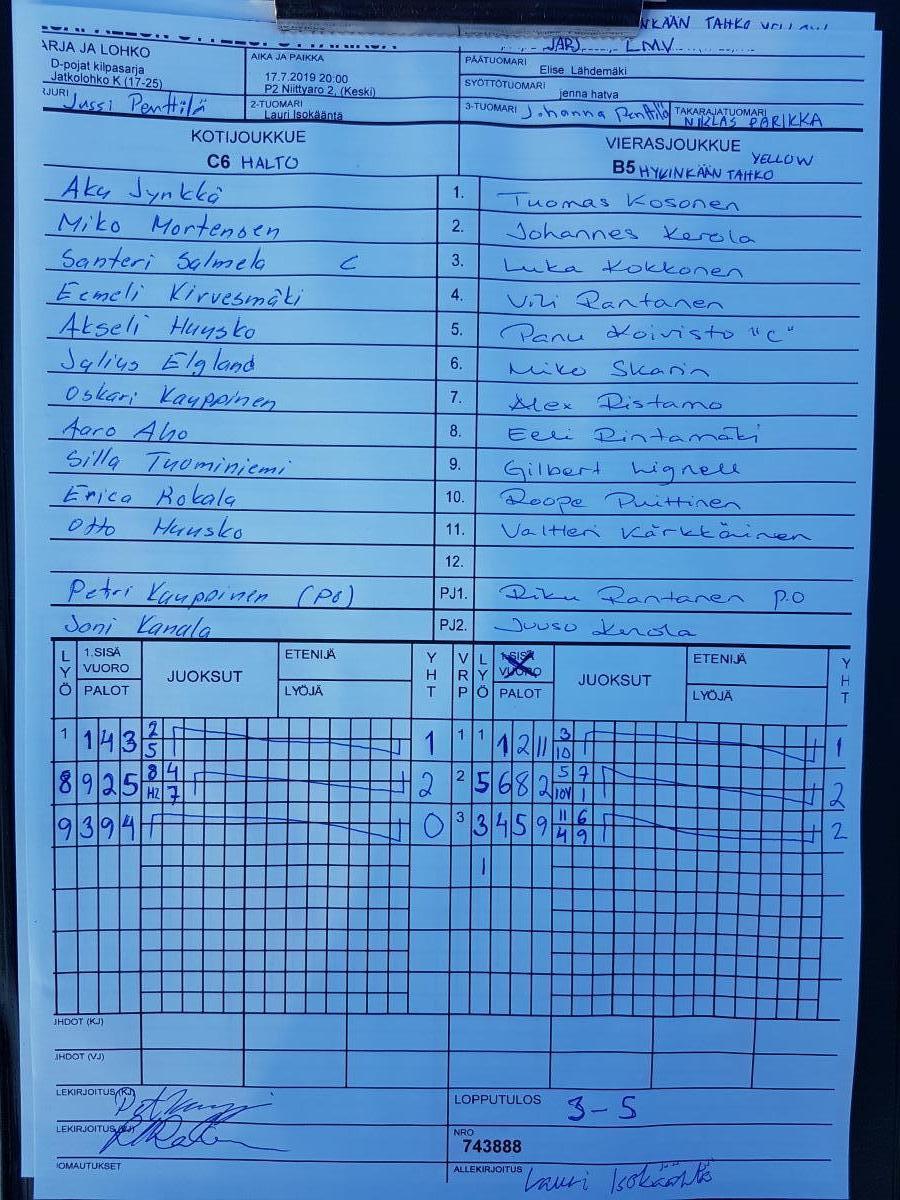 NKÄÄN TAHKO YELLOW
JÄRJ. LMV
ARJA JA LOHKO
D-pojat kilpasarja
Jatkolohko K (17-25)
AIKA JA PAIKKA
17.7.2019 20:00
P2 Niittyaro 2, (Keski)
PÄÄTUOMARI
Elise Lähdemäki
SYÖTTÖTUOMARI
jenna hatva
RJURI
Jussi Penttilä
2-TUOMARI
Lauri Isokääntä
3-TUOMARI Johanna Penttilä
TAKARAJATUOMARI
NIKLAS PARIKKA
KOTIJOUKKUE
C6 HALTO
VIERASJOUKKUE
B5 HYVINKÄÄN TAHKO YELLOW
Aku Jynkkä 1. Tuomas Kosonen
Miko Mortensen 2. Johannes Kerola
Santeri Salmela C 3. Luka Kokkonen
Eemeli Kirvesmäki 4. Vili Rantanen
Akseli Huusko 5. Panu Koivisto "C"
Julius Elgland 6. Miko Skarin
Oskari Kauppinen 7. Alex Ristamo
Aaro Aho 8. Eeli Rintamäki
Silla Tuominiemi 9. Gilbert Lignell
Erica Rokala 10. Roope Puittinen
Otto Huusko 11. Valtteri Kärkkäinen
12.
Petri Kauppinen (PO) PJ1. Riku Rantanen P.O
Joni Kanala PJ2. Juuso Kerola
LYÖ 1.SISÄ VUORO PALOT JUOKSUT ETENIJÄ LYÖJÄ YHT VRP LYÖ 1.SISÄ VUORO PALOT JUOKSUT ETENIJÄ LYÖJÄ YHT
1 1 4 3 2 1 1 1 1 2 11 3 1
5 10
8 9 2 5 8 4 2 2 5 6 8 2 5 7 2
H2 7 10V 1
9 3 9 4 0 3 3 4 5 9 11 6 2
4 9
1
JHDOT (KJ)
JHDOT (VJ)
LEKIRJOITUS (KJ)
LOPPUTULOS 3-5
LEKIRJOITUS
NRO
743888
IOMAUTUKSET
ALLEKIRJOITUS Lauri Isokääntä